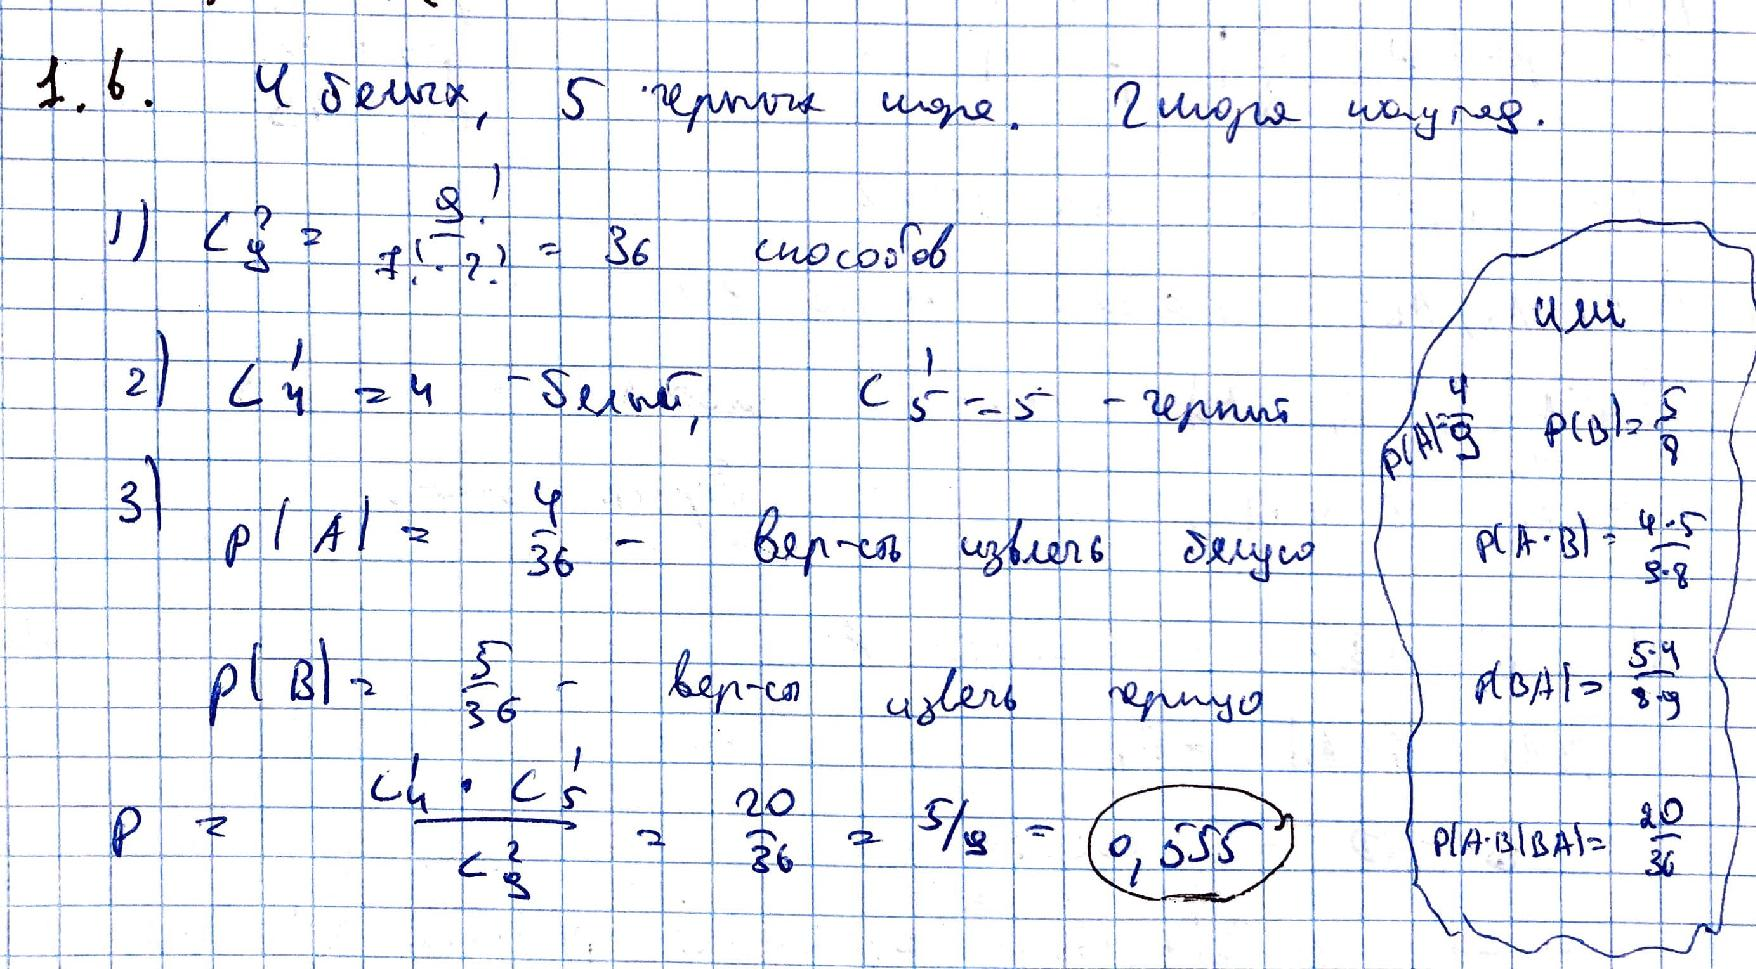 1.6. 4 белых, 5 черных шара. 2 шара наугад.
1) C₉² = 9!/(7!·2!) = 36 способов
2) C₄¹ = 4 - белый, C₅¹ = 5 - черный
3) P(A) = 4/36 - вер-сть извлечь белую
P(B) = 5/36 - вер-сть извлечь черную
P = C₄¹ · C₅¹ / C₉² = 20/36 = 5/9 = 0,555
или
P(A)=4/9 P(B)=5/8
P(A·B)=4·5/9·8
P(BA)=5·4/8·9
P(A·B|BA)=20/36